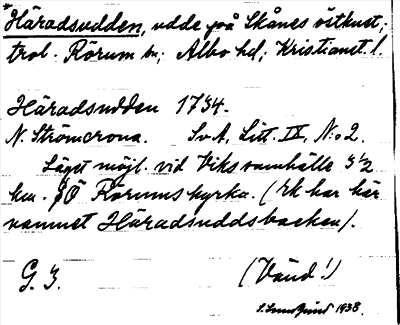 *Häradsudden, udde på Skånes östkust;
trol. Rörum sn; Albo hd; Kristianst. l.
Häradsudden 1734.
N. Strömcrona. Sv.A. Litt. IX, N:o 2.
Läget möjl. vid Viks samhälle 3 1/2
km. Ö Rörums kyrka. (rk har här
namnet Häraduddsbacken).
G. 3. (Vänd!)
1938.